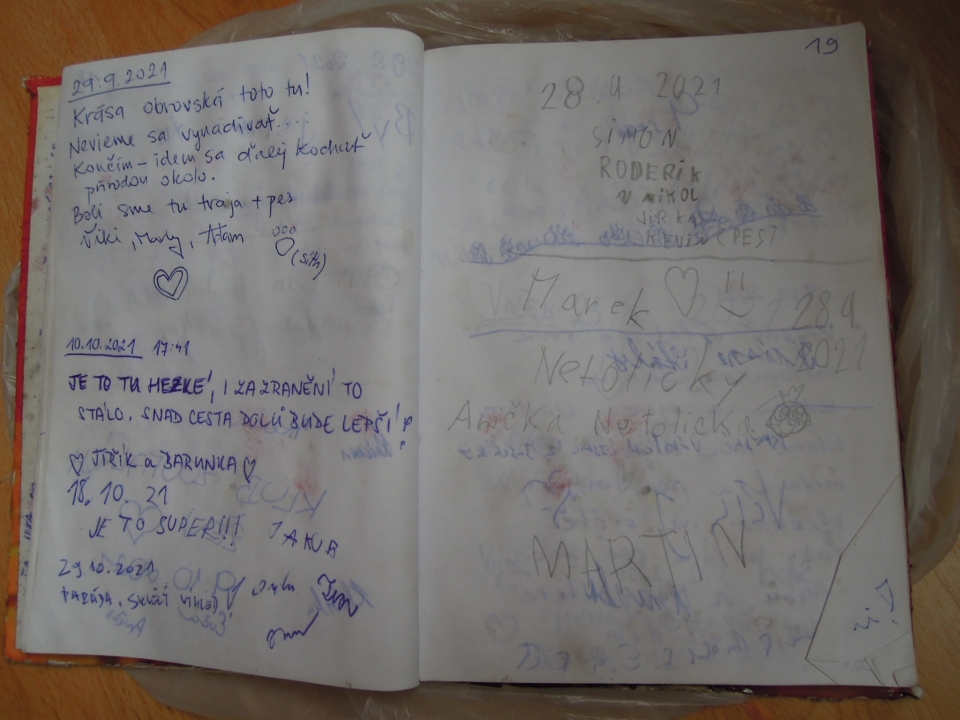 29.9.2021
Krása obrovská toto tu!
Nevieme sa vynadívať....
Končím – idem sa ďalej kochať
prírodou okolo.
Boli sme tu traja + pes
Viki, Marty, Adam
10.10.2021 17:41
JE TO TU HEZKÉ, I ZA ZRANĚNÍ TO
STÁLO. SNAD CESTA DOLŮ BUDE LEPŠÍ!
♡ JIŘÍK a BARUNKA ♡
18.10.21
JE TO SUPER!!! JAKUB
29.10.2021
19
28.4 2021
SIMON
RODERIK
NIKOL
JIRKA
(PES)
Marek ♡ 28.4.
2021
Netolický
Anička Netolická
MARTIN